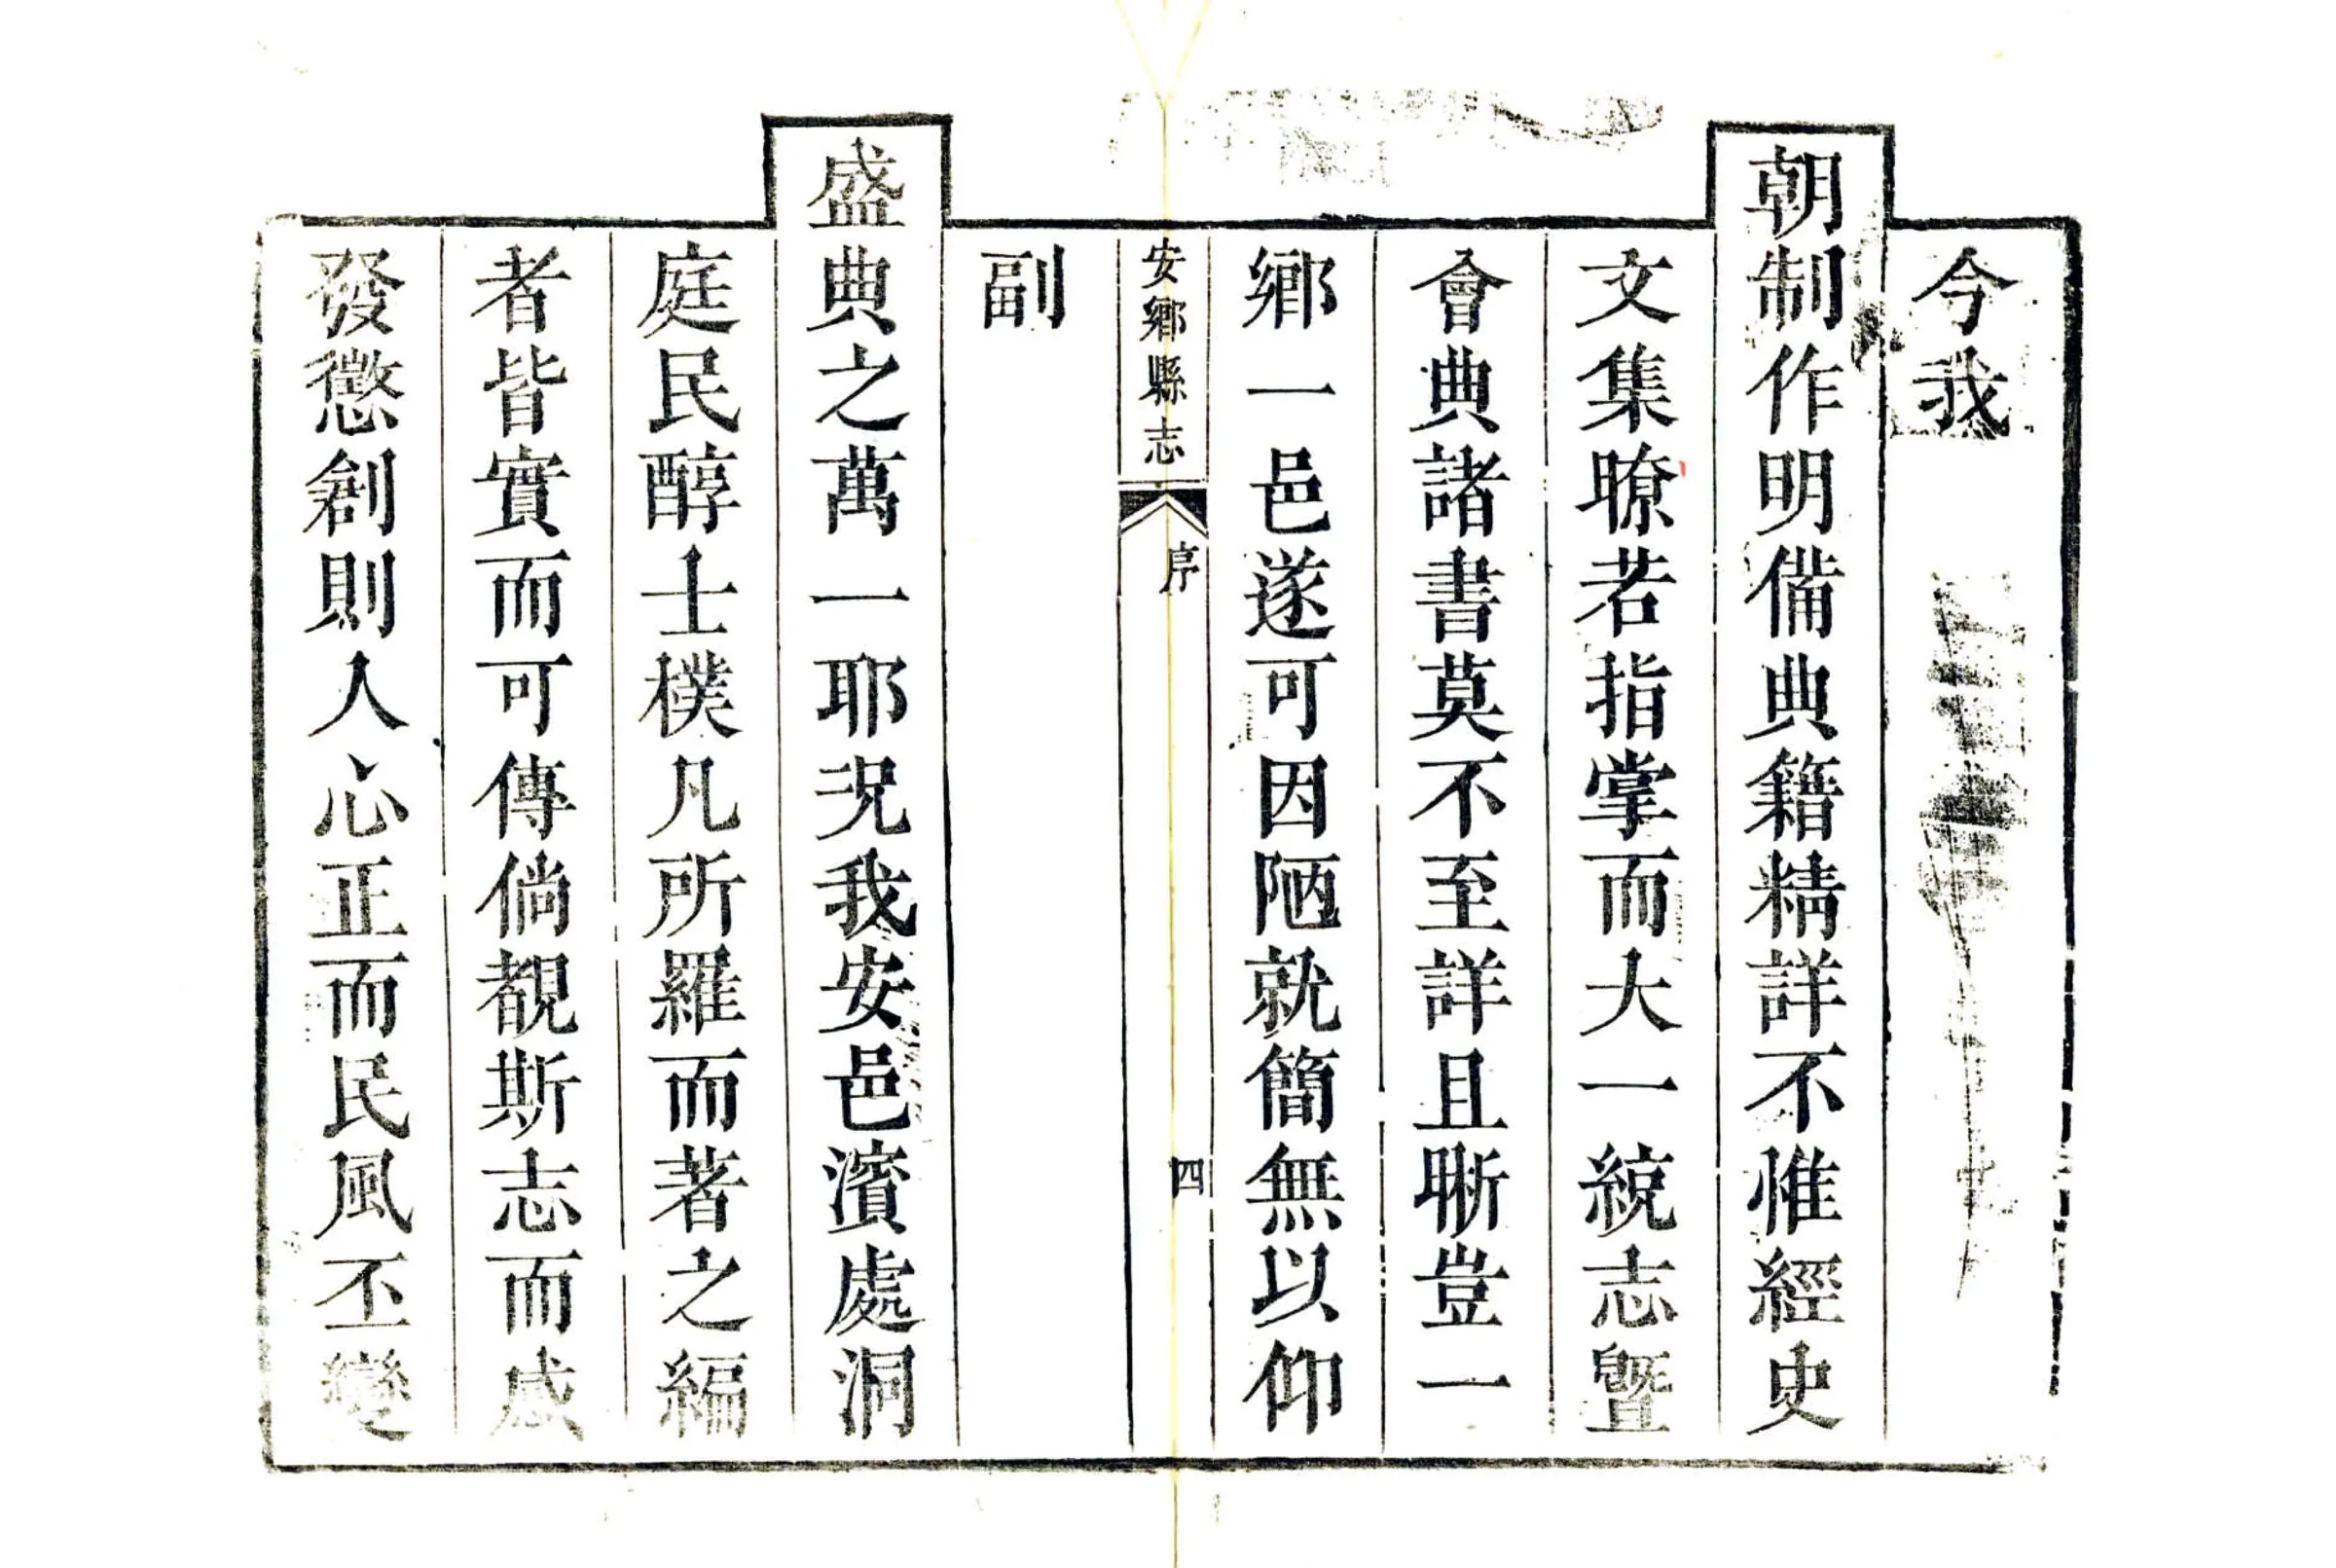 今我
朝制作明備典籍精詳不惟經史
文集瞭若指掌而大一統志曁
會典諸書莫不至詳且晰豈一
鄉一邑遂可因陋就簡無以仰
安鄉縣志
序
四
副
盛典之萬一耶況我安邑濱處洞
庭民醇士樸凡所羅而著之編
者皆實而可傳倘覩斯志而感
發懲創則人心正而民風丕變